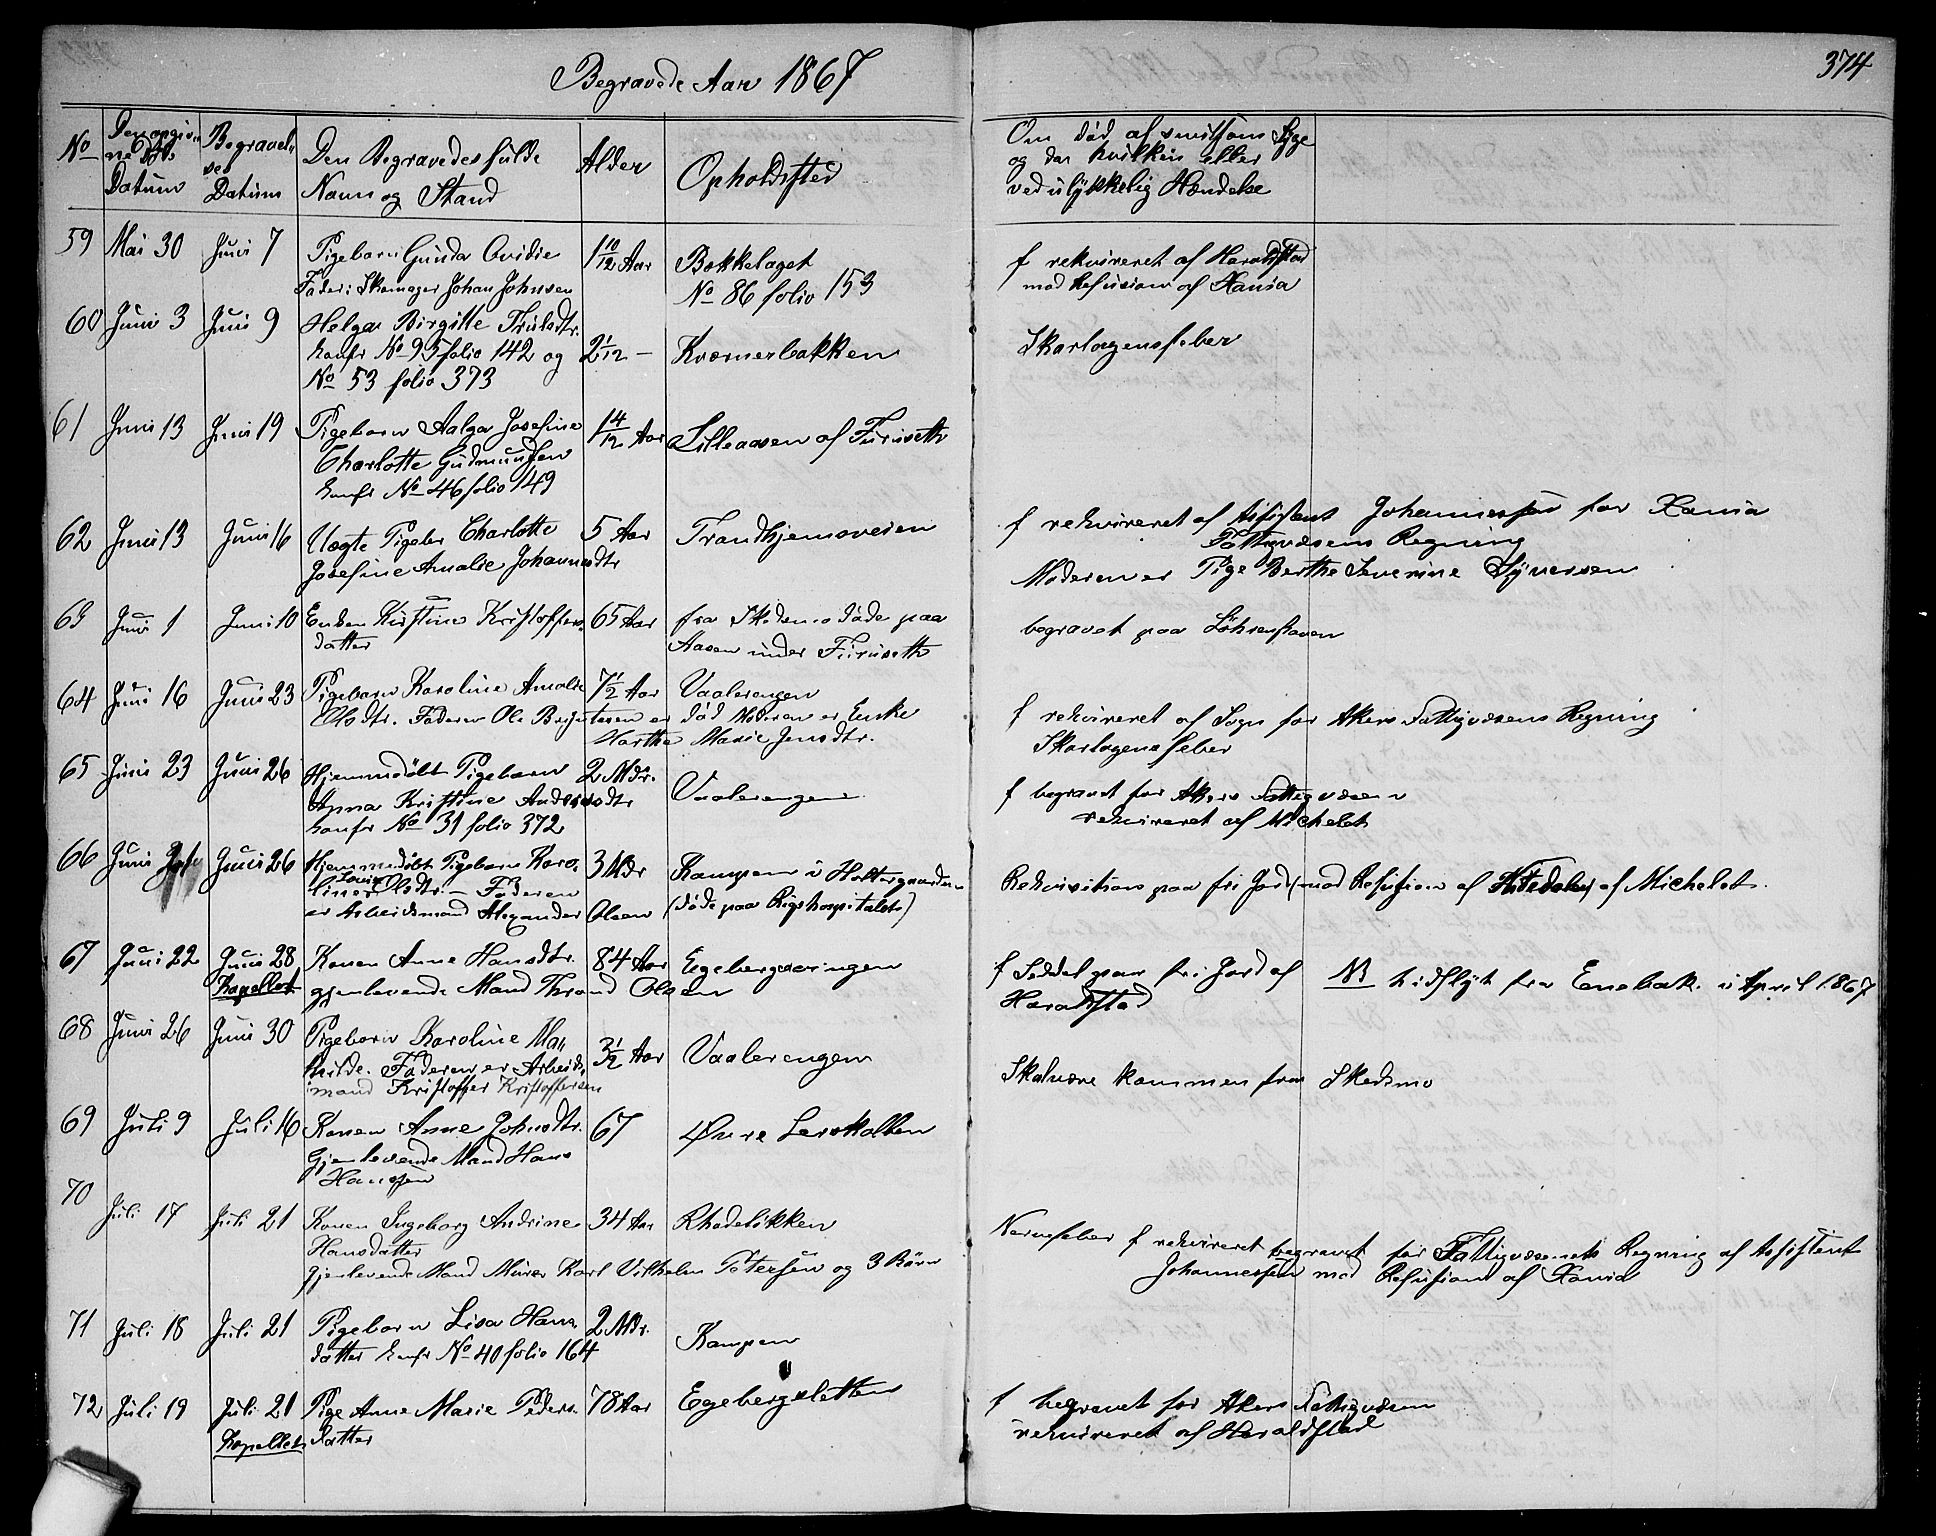 374
Begravede Aar 1867
No
Den opgiv-
ne Døds
Datum
Begravel-
ses
Datum
Den Begravedes fulde
Navn og Stand
Alder
Opholdssted
Om død af smitsom Syge
og da hvilken eller
ved ulykkelig Hændelse
59 Mai 30 Juni 7 Pigebarn Gunda Ovidie 1 10/12 Aar Bækkelaget f rekvireret af Haraldstad
Fader: Skomager Johan Johnsen No 86 folio 153 mod Refusion af Xania
60 Juni 3 Juni 9 Helga Birgitte Trulsdtr. Skarlagensfeber
konfr No 95 folio 142 og 2 1/12 – Kværnerbakken
No 53 folio 373
61 Juni 13 Juni 19 Pigebarn Aalga Josefine 1 4/12 Aar Lilleaasen af Furuseth
Charlotte Gudmundsen
konfr No 46 folio 149
62 Juni 13 Juni 16 Uægte Pigebr Charlotte 5 Aar Trondhjemsveien f rekvireret af Assistent Johannessen for Xania
Josefine Amalie Johannsdtr Fattigvæsens Regning
Moderen er Pige Berthe Severine Syversen
63 Juni 1 Juni 10 Enken Kirstine Kristoffers- 65 Aar fra Skedsmo døde paa begravet paa
datter Aasen under Furuseth
64 Juni 16 Juni 23 Pigebarn Karoline Amalie 7 1/2 Aar Vaalerengen f rekvireret af Sogn for Akers Fattigvæsens Regning
Olsdtr. Faderen Ole er død Moderen er Enke Skarlagensfeber
Marthe Marie Jensdtr.
65 Juni 23 Juni 26 Hjemmedøbt Pigebarn 2 Mdr. Vaalerengen f begravet for Akers Fattigvæsen
Anna Kristine Andersdtr rekvireret af Michelet
konfr No 31 folio 372
66 Juni 21 Juni 26 Hjemmedøbt Pigebarn Karo- 3 Mdr Kampen i Holtegaarden Rekvisition paa fri Jord (mod Refusion af ) af Michelet.
line Lovise Olsdtr. – Faderen
er Arbeidsmand Alexander Olsen (døde paa Rigshospitalet)
67 Juni 22 Juni 28 Konen Anne Hansdtr. 84 Aar Egebergsvingen f Seddel paa fri Jord af NB hidflyt fra Enebak i April 1867
Kapellet gjenlevende Mand Thrond Olsen Haraldstad
68 Juni 26 Juni 30 Pigebarn Karoline Ma- 3 1/2 Aar Vaalerengen Skal være kommen fra Skedsmo
thilde. Faderen er Arbeids-
mand Kristoffer Kristoffersen
69 Juli 9 Juli 16 Konen Anne Johnsdtr. 67 Øvre Lerskallen
Gjenlevende Mand Hans
Hanssen
70 Juli 17 Juli 21 Konen Ingeborg Andrine 34 Aar Rhodeløkken Nervefeber f rekvireret begravet for Fattigvæsenets Regning af Assistent
Hansdatter Johannessen mod Refusion af Xania
gjenlevende Mand Murer Karl Vilhelm Petersen og 3 Børn
71 Juli 18 Juli 21 Pigebarn Lisa Hans- 2 Mdr. Kampen
datter konfr No 40 folio 164
72 Juli 19 Juli 21 Pige Anne Marie Peders- 78 Aar Egebergsletten f begravet for Akers Fattigvæsen
Kapellet datter rekvireret af Haraldstad